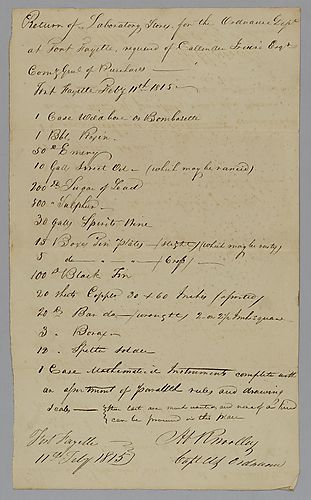 Return of Laboratory Stores, for the Ordnance Dept
at Fort Fayette, required of Callender Irvine Esqr
Comy Genl of Purchases
Fort Fayette Feby 11th 1815
1 Case Wildbore or Bombasette
1 Bbl. Rosin
50 lb Emery
10 Galls Sweet Oil - (which may be rancid)
200 lb Sugar of Lead
300 " Sulphur
30 Galls Spirits Wine
15 Boxes Tin Plates - (Light) (which may be rusty)
5 do - " - (Cross) -
100 lb Black Tin
20 sheets Copper 30 x 60 Inches (assorted)
20 lb Bar do (wrought) 2 or 2 1/2 Inch square
3 " Borax
12 " Spelter solder
1 Case Mathematical Instruments complete with
an assortment of parallel rules and drawing
scales - the last are much wanted and none of a kind
can be procured in this place
Fort Fayette
11th Feby 1815
Capt US Ordnance